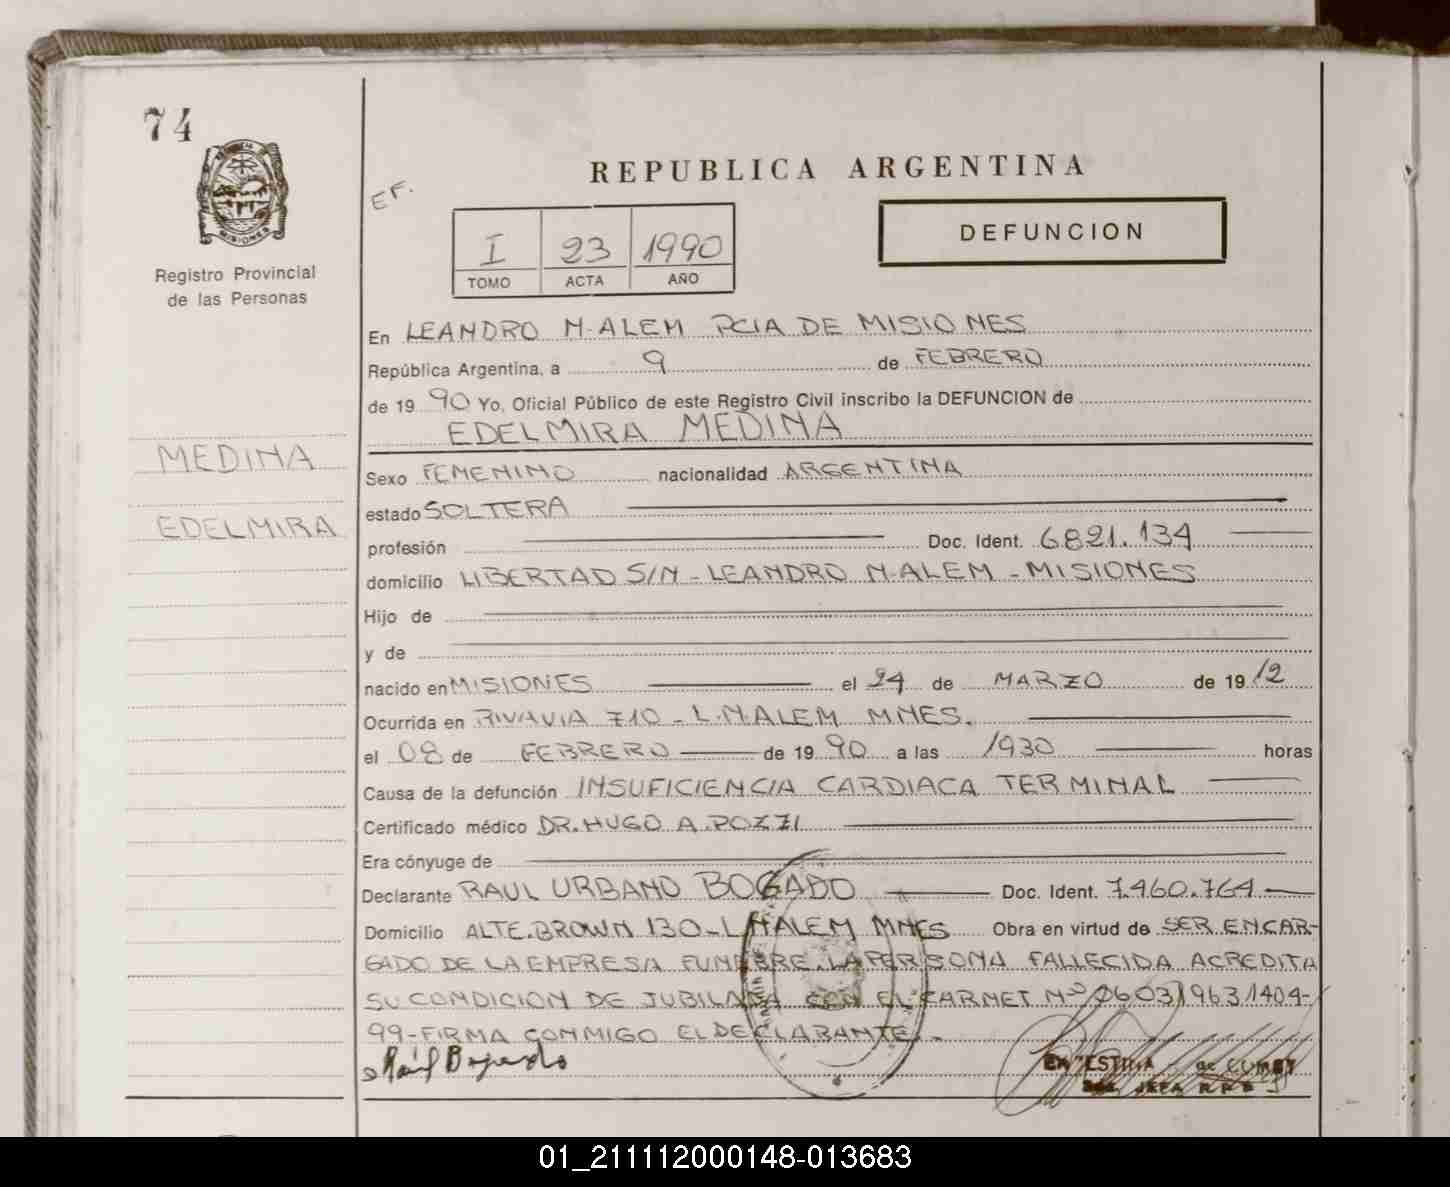 74
REPUBLICA ARGENTINA
EF.
MISIONES
Registro Provincial
de las Personas
I 23 1990
TOMO ACTA AÑO
DEFUNCION
En LEANDRO N. ALEM PCIA DE MISIONES
República Argentina, a 9 de FEBRERO
de 1990 Yo, Oficial Público de este Registro Civil inscribo la DEFUNCION de
EDELMIRA MEDINA
MEDINA
EDELMIRA
Sexo FEMENINO nacionalidad ARGENTINA
estado SOLTERA
profesión Doc. Ident. 6821.134
domicilio LIBERTAD S/N - LEANDRO N. ALEM - MISIONES
Hijo de
y de
nacido en MISIONES el 24 de MARZO de 1912
Ocurrida en RIVAVIA 710 - L.N. ALEM MNES.
el 08 de FEBRERO de 1990 a las 1930 horas
Causa de la defunción INSUFICIENCIA CARDIACA TERMINAL
Certificado médico DR. HUGO A. POZZI
Era cónyuge de
Declarante RAUL URBANO BOGADO Doc. Ident. 7.460.764
Domicilio ALTE. BROWN 130 - L N ALEM MNES Obra en virtud de SER ENCAR-
GADO DE LA EMPRESA FUNEBRE. LA PERSONA FALLECIDA ACREDITA
SU CONDICION DE JUBILADA CON EL CARNET Nº 060319631404-
99-FIRMA CONMIGO EL DECLARANTE.
Raúl Bogado
ERNESTINA de
JEFA
01_211112000148-013683